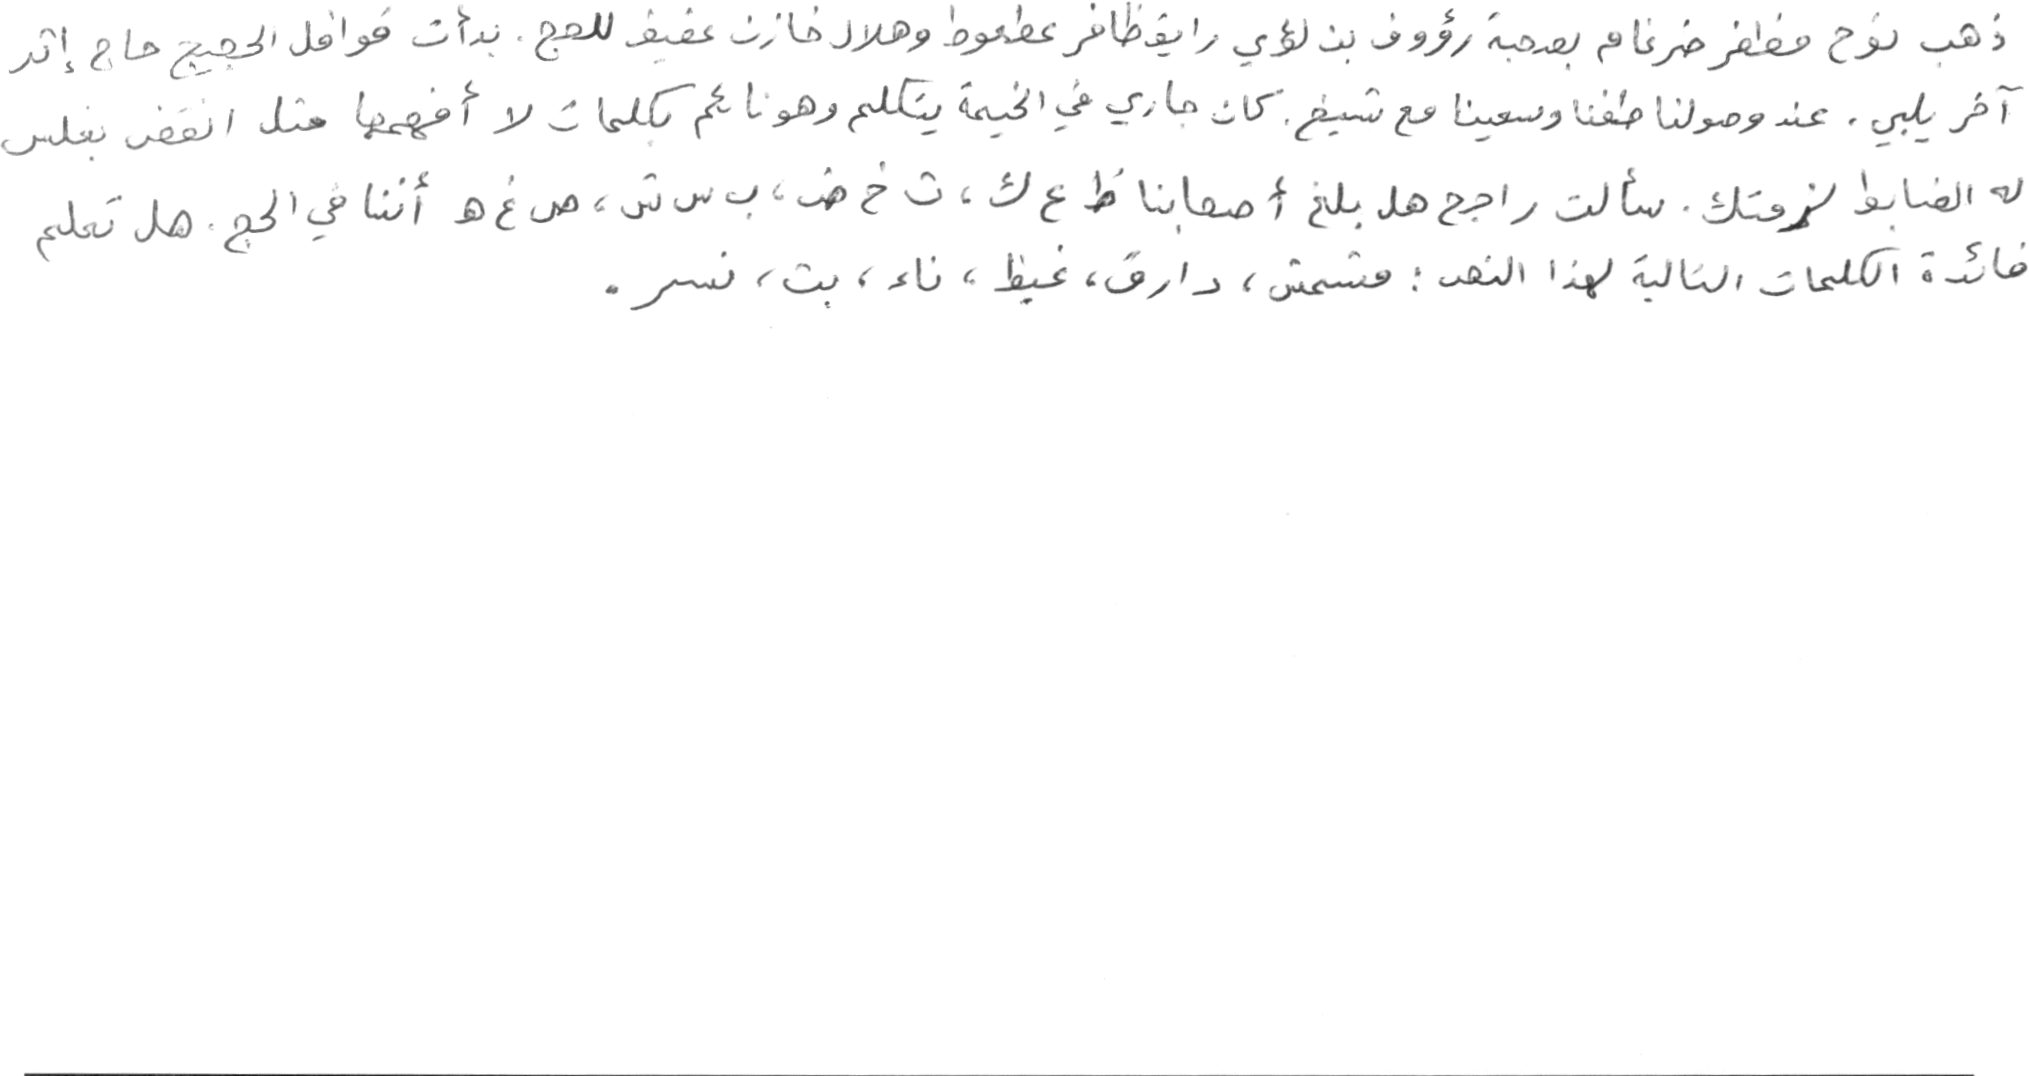 ذهب نوح مظفر ضرغام بصحبة رؤوف بن لؤي رايق ظافر عطعوط وهلال خازن عفيف للحج . بدأت قوافل الحجيج حاج إثر
آخر يلبي . عند وصولنا طفنا وسعينا مع شيخ . كان جاري في الخيمة يتكلم وهو نائم بكلمات لا أفهمها مثل انقض بغلس
له الضابط لنزمتك . سألت راجح هل بلغ أصحابنا ظ ع ك ، ث خ ض ، ب س ش ، ص غ ه أننا في الحج . هل تعلم
فائدة الكلمات التالية لهذا النص : مشمش ، دارق ، غيظ ، ناء ، بت ، نسر .